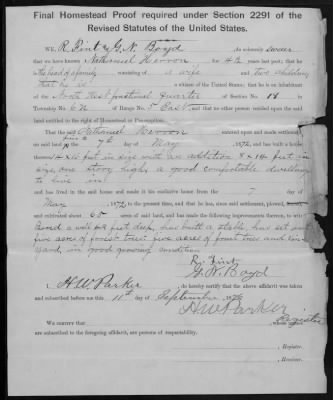 Final Homestead Proof required under Section 2291 of the
Revised Statutes of the United States.
WE, R. Fint & G. N. Boyd do solemnly swear
that we have known Nathaniel Herron for years last past; that he
is the head of a family consisting of a wife and two children
that he is a citizen of the United States; that he is an inhabitant
of the North East fractional quarter of Section No. 18
Township No. 6 N of Range No. 5 East, and that no other person resided upon the said
land entitled to the right of Homestead or Pre-emption.
That the said Nathaniel Herron entered upon and made settlement
on said land on the 7th day of May, 1872, and built a house
thereon 14 x 16 feet in size with an addition 8 x 14 feet in
size, one story high, a good comfortable dwelling
to live in
and has lived in the said house and made it his exclusive home from the 7 day of
May, 1872, to the present time, and that he has, since said settlement, plowed,
and cultivated about 65 acres of said land, and has made the following improvements thereon, to wit:
a well feet deep, has built a stable, has set out
five acres of forest trees five acres of fruit trees and
yard, in good growing condition
R. Fint
G. N. Boyd
I, H. W. Parker do hereby certify that the above affidavit was taken
and subscribed before me this 11th day of September, 1876
H W Parker
Register
We certify that , whose names
are subscribed to the foregoing affidavit, are persons of respectability.
, Register.
, Receiver.